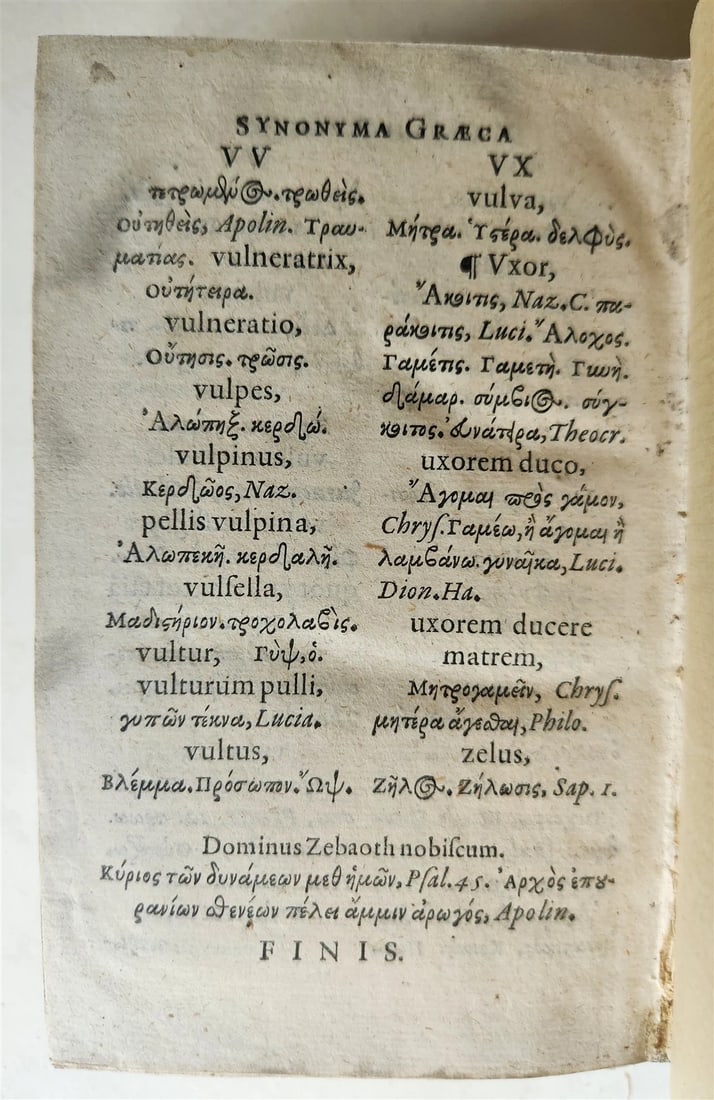 SYNONYMA GRÆCA
VV
πετρωμένος. τρωθεὶς.
Οὐτηθεὶς, Apolin. Τραυ-
ματίας. vulneratrix,
Οὐτήτειρα.
vulneratio,
Οὔτησις. τρῶσις.
vulpes,
Ἀλώπηξ. κερδώ.
vulpinus,
Κερδῶος, Naz.
pellis vulpina,
Ἀλωπεκῆ. κερδαλῆ.
vulſella,
Μαδιστήριον. τροχολαβὶς.
vultur, Γὺψ, ὁ.
vulturum pulli,
γυπῶν τέκνα, Lucia.
vultus,
Βλέμμα. Πρόσωπον. Ὤψ.
VX
vulva,
Μήτρα. Ὑστέρα. δελφὺς.
¶ Vxor,
Ἄκοιτις, Naz. C. πα-
ράκοιτις, Luci. Ἄλοχος.
Γαμέτις. Γαμετὴ. Γυνὴ.
δάμαρ. σύμβιος. σύγ-
κοιτος. Theocr.
uxorem duco,
Ἄγομαι πρὸς γάμον,
Chryſ. Γαμέω, ἢ ἄγομαι ἢ
λαμβάνω. γυναῖκα, Luci.
Dion. Ha.
uxorem ducere
matrem,
Μητρογαμεῖν, Chryſ.
μητέρα ἄγεσθαι, Philo.
zelus,
Ζῆλος. Ζήλωσις, Sap. 1.
Dominus Zebaoth nobiſcum.
Κύριος τῶν δυνάμεων μεθ ἡμῶν, Pſal. 45. Ἀρχὸς ἐπου-
ρανίων σθενέων πέλει ἄμμιν ἀρωγός, Apolin.
FINIS.